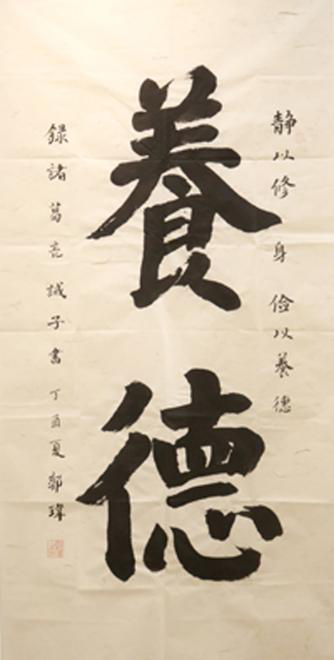 静以修身 儉以養德
養德
錄諸葛亮誡子書 丁酉夏 郭瑋